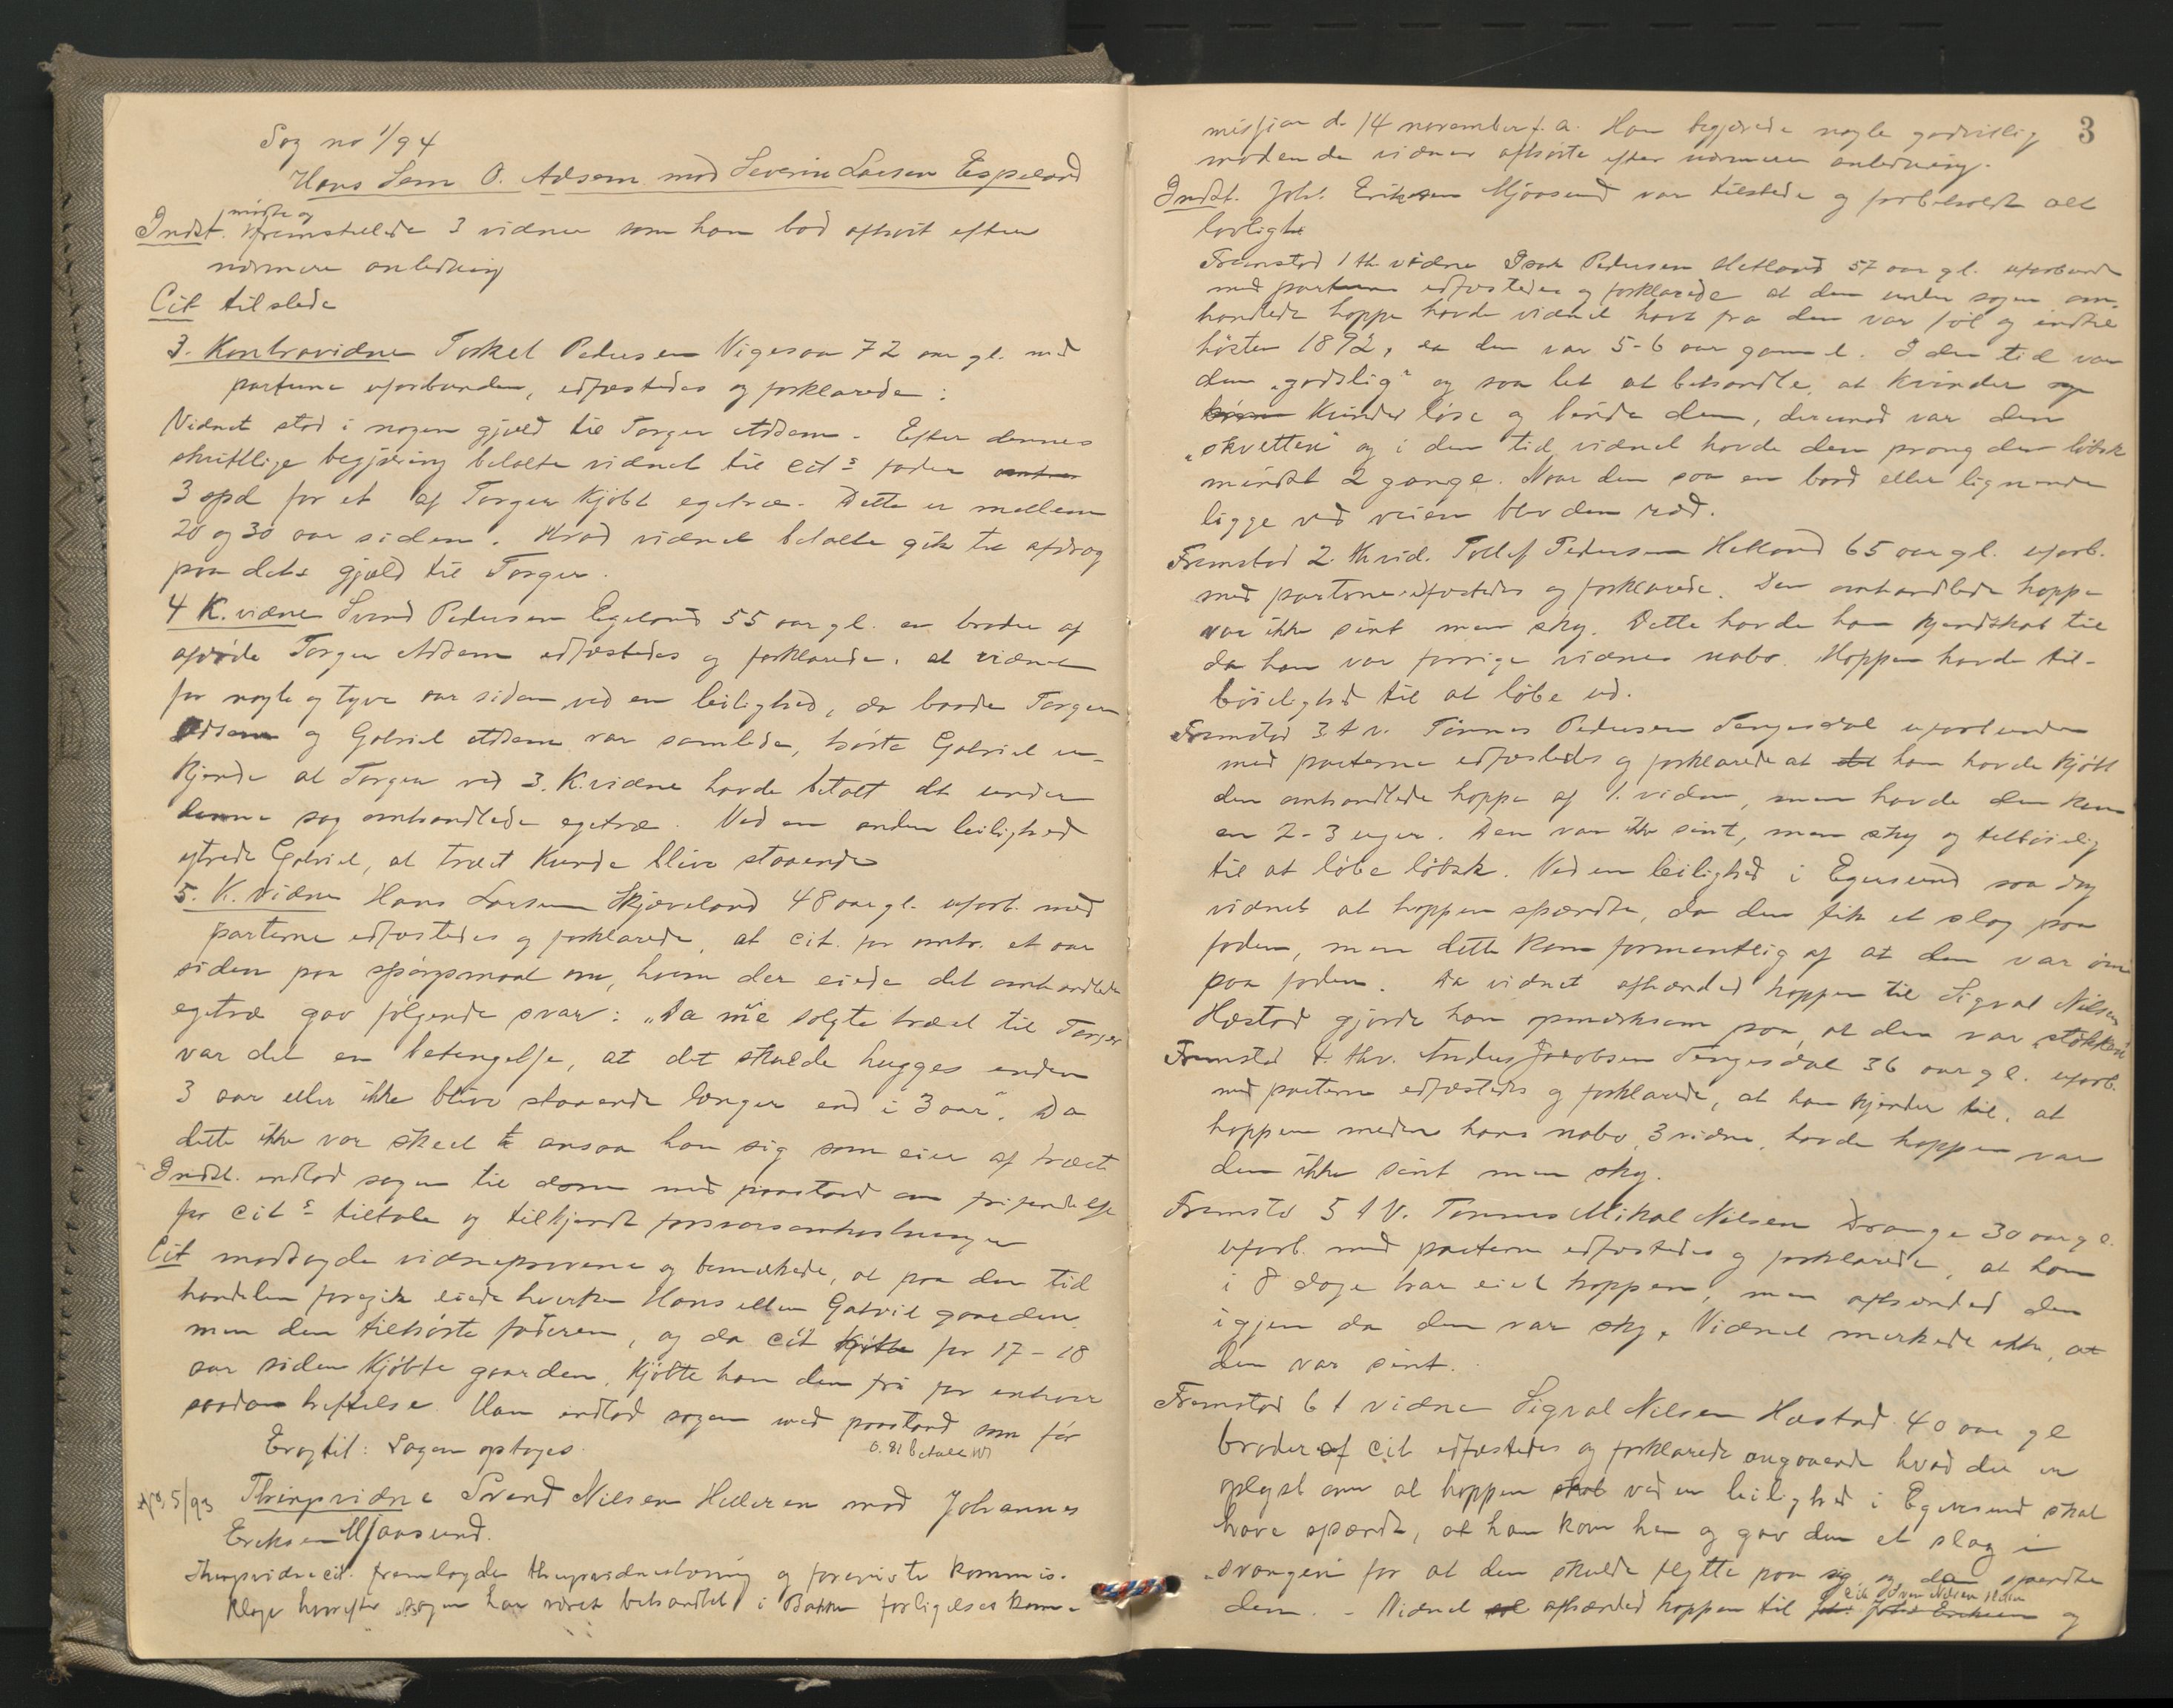 Sag no 1/94
Hans Sem O. Adsem mod Severin Larsen Espeland
Indst. mødte og fremstillede 3 vidner som han bad afhørt efter
nærmere anledning
Cit tilstede
3. Kontravidne Torkel Pedersen Vigesaa 72 aar gl. med
parterne uforbunden, edfæstedes og forklarede:
Vidnet stod i nogen gjæld til Torger Adsem. Efter dennes
skriftlige begjæring betalte vidnet til cits fader
3 spd for et af Torger kjøbt egetræ. Dette er mellem
20 og 30 aar siden. Hvad vidnet betalte gik til afdrag
paa dets gjæld til Torger.
4 K. vidne Svend Pedersen Egeland 55 aar gl. en broder af
afdøde Torger Adsem edfæstedes og forklarede, at vidnet
for nogle og tyve aar siden ved en leilighed, da baade Torger
Adsem og Gabriel Adsem var samlede, hørte Gabriel er-
kjende at Torger ved 3. K.vidne havde betalt det under
denne sag omhandlede egetræ. Ved en anden leilighed
ytrede Gabriel, at træet kunde blive staaende
5. K. vidne Hans Larsen Skjæveland 48 aar gl. uforb. med
parterne edfæstedes og forklarede, at cit. for omtr. et aar
siden paa spørgsmaal om, hvem der eiede det omhandlede
egetræ gav følgende svar: „Da vi solgte træet til Torger
var det en betingelse, at det skulde hugges inden
3 aar eller ikke blive staaende længer end i 3 aar". Da
dette ikke var skeet ansaa han sig som eier af træet
Indst. indlod sagen til dom med paastand om frifindelse
for cits tiltale og tilkjendt forsvarsomkostninger
Cit modsagde vidneprovene og bemærkede, at paa den tid
handelen foregik eiede hverken Hans eller Gabriel gaarden
men den tilhørte faderen, og da cit kjøbte for 17-18
aar siden kjøbte gaarden, kjøbte han den fri for enhver
saadan heftelse. Han indlod sagen med paastand som før
Eragtet: Sagen optages.
0.81 betalt
No 5/93 Thingsvidne Svend Nilsen Helleren mod Johannes
Eriksen Mjaasund.
Thingsvidnecit. fremlagde thingsvidnestevning og foreviste kommis.
klage hvorefter sagen har været behandlet i Bakke forligelseskom-
3
missjon d. 14 november f. a. Han begjærede nogle godvillig
mødende vidner afhørte efter nærmere anledning.
Indst. Joh. Eriksen Mjaasund var tilstede og forbeholdt alt
lovligt
Fremstod 1 th. vidne Isak Pedersen Hetland 57 aar gl. uforbunden
med parterne edfæstedes og forklarede at den under sagen om-
handlede hoppe havde vidnet havt fra den var føl og indtil
høsten 1892, da den var 5-6 aar gammel. I den tid var
den „godslig" og saa let at behandle, at kvinder og
børn kunde løse og binde den, derimod var den
„skvetten" og i den tid vidnet havde den sprang den løbsk
mindst 2 gange. Naar den saa en bord eller lignende
ligge ved veien blev den ræd.
Fremstod 2. th vid. Tollef Pedersen Hetland 65 aar gl. uforb.
med parterne edfæstedes og forklarede. Den omhandlede hoppe
var ikke sint men sky. Dette havde han kjendskab til
da han var forrige vidnes nabo. Hoppen havde til-
bøielighed til at løbe ud.
Fremstod 3 t v. Tønnes Pedersen Tengesdal uforbunden
med parterne edfæstedes og forklarede at han havde kjøbt
den omhandlede hoppe af 1. vidne, men havde den kun
en 2-3 uger. Den var ikke sint, men sky og tilbøielig
til at løbe løbsk. Ved en leilighed i Egersund saa dog
vidnet at hoppen spændte, da den fik et slag paa
foden, men dette kom formentlig af at den var øm
paa foden. Da vidnet afhændet hoppen til Sigval Nilsen
Hæstad gjorde han opmærksom paa, at den var „støkken"
Fremstod 4. thv. Anders Jakobsen Tengesdal 36 aar gl. uforb.
med parterne edfæstedes og forklarede, at han kjender til, at
hoppen medens hans nabo, 3 vidne, havde hoppen var
den ikke sint men sky.
Fremstod 5 t V. Tønnes Mikal Nilsen Drange 30 aar gl.
uforb. med parterne edfæstedes og forklarede, at han
i 8 dage har eiet hoppen, men afhændet den
igjen da den var sky. Vidnet merkede ikke, at
den var sint.
Fremstod 6 t vidne Sigval Nilsen Hæstad 40 aar gl
broder af cit edfæstedes og forklarede angaaende hvad der er
oplyst om at hoppen skal ved en leilighed i Egersund skal
have spændt, at han kom hen og gav den et slag i
„svangen" for at den skulde flytte paa sig og da spændte
den. - Vidnet afhændet hoppen til cit Sven Nilsen Helleren og